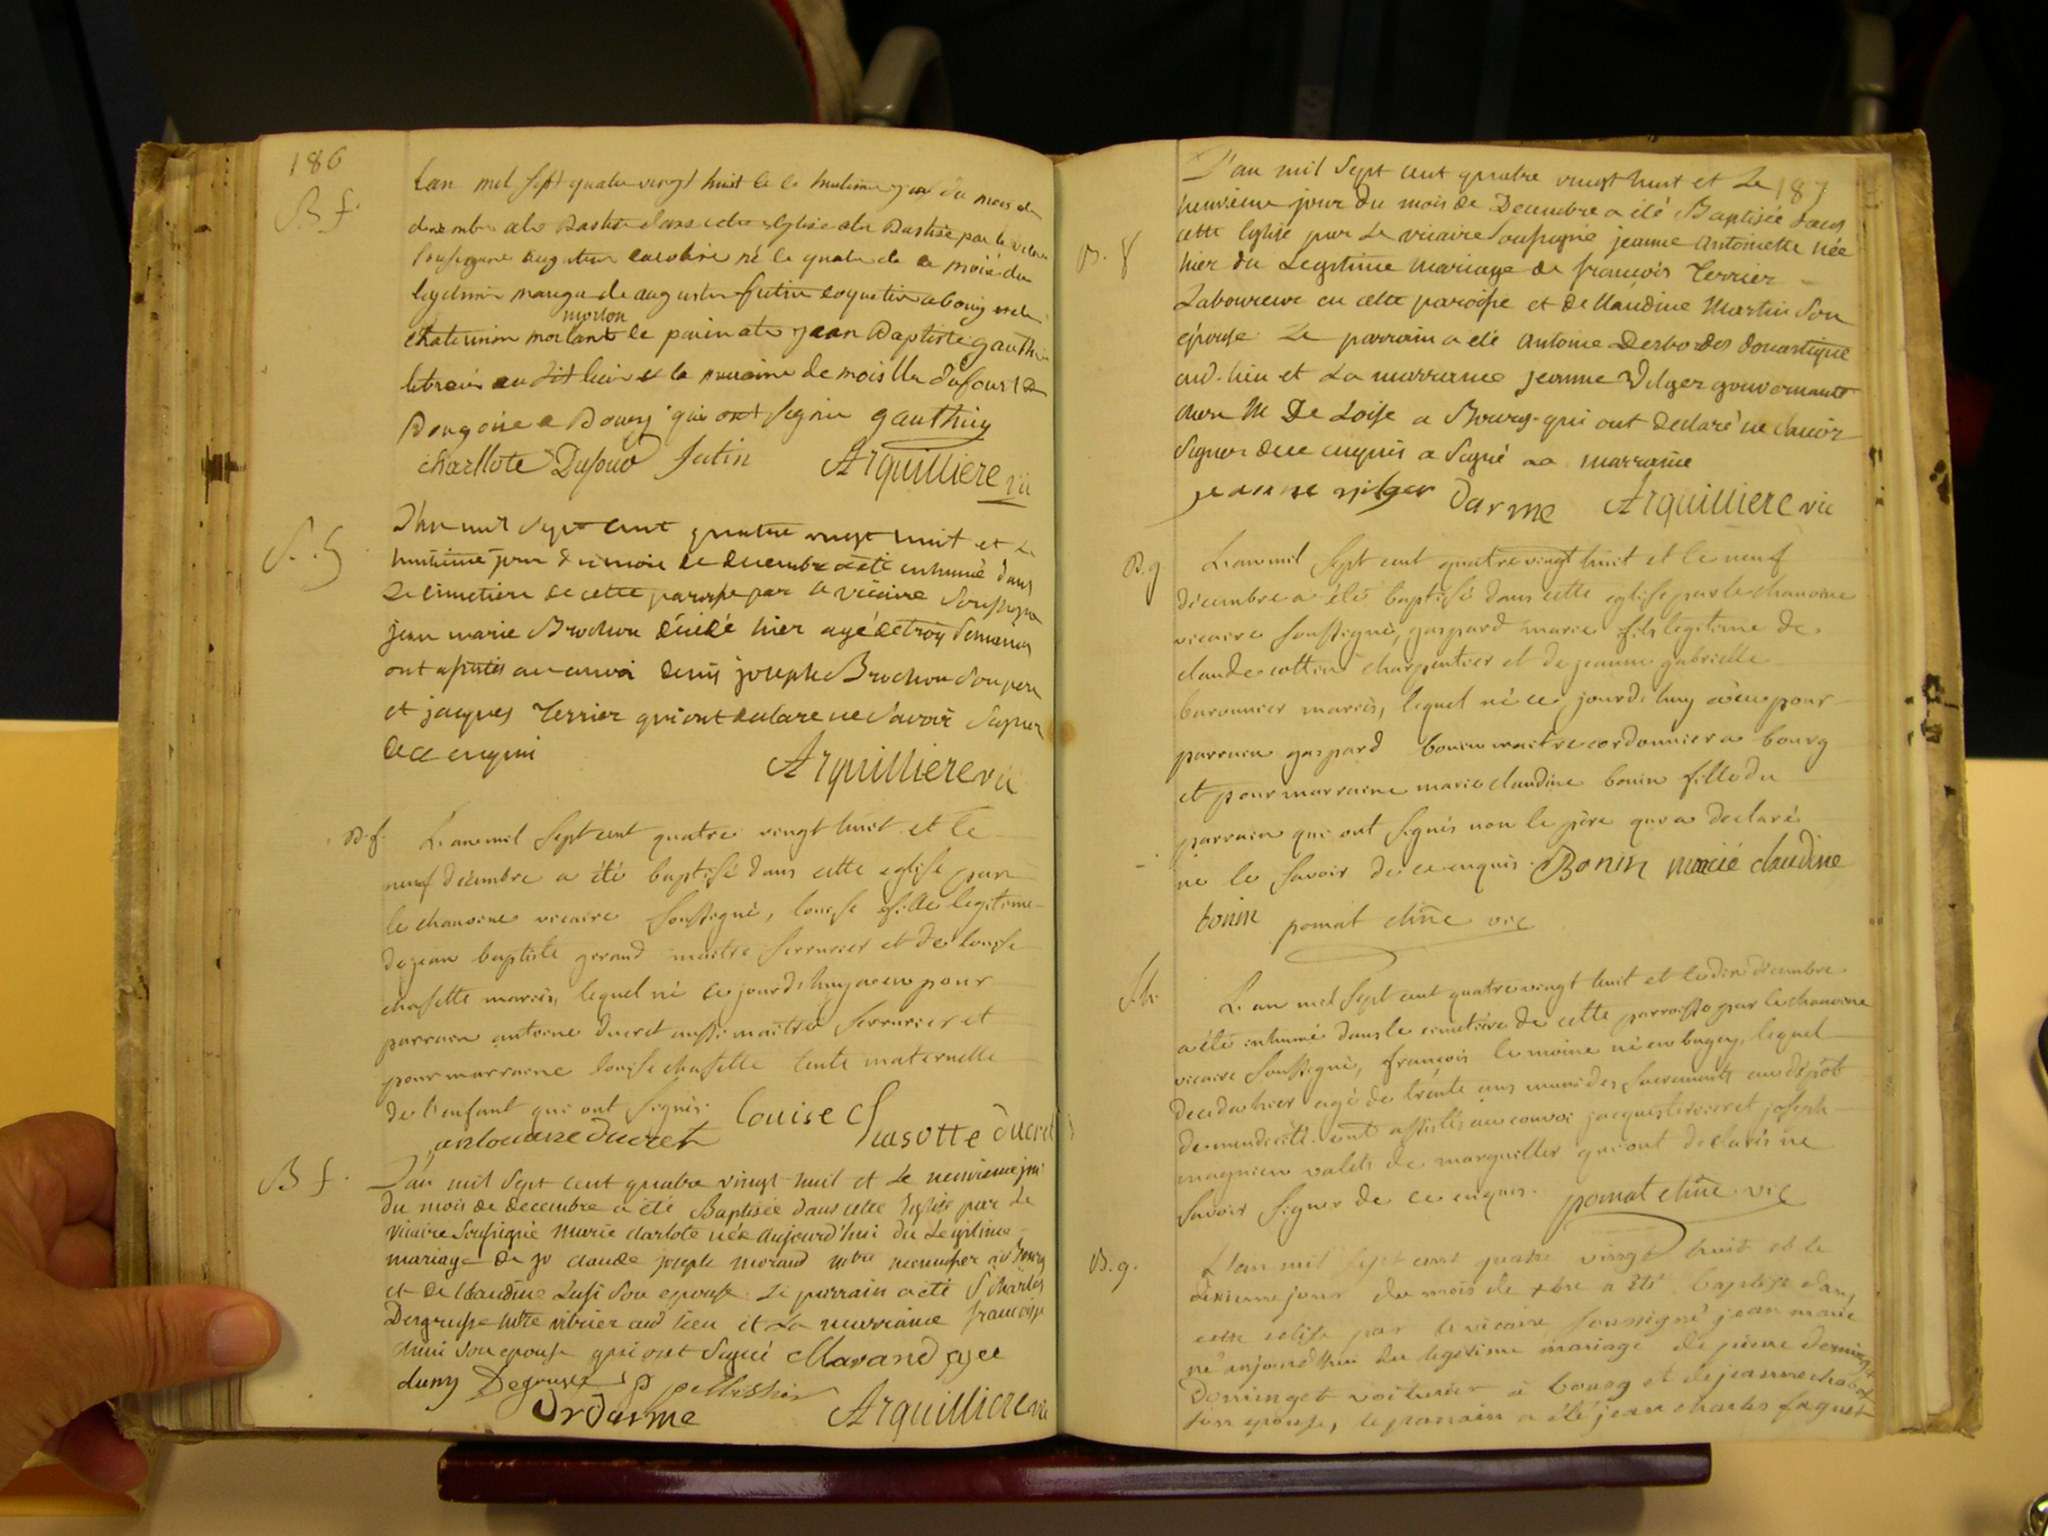 186
B f.
Lan mil sept quatre vingt huit le huitieme jour du mois de
dans cette église par le vicaire
soussigne né le quatre de ce mois du
mariage de augustin futin coquetier a bourg
morlon
le parin ate jean Baptiste gauthier
au dit lieu et la mareine de moiselle dufour
a Bourg qui ont signe gauthier
charllote Dufour futin Arquilliere vic
S. g
L'an mil sept cent quatre vingt huit et le
huitieme jour du mois de decembre a été inhumé dans
le cimetiere de cette paroisse par le vicaire soussigné
jean marie Brochon décédé hier agé de troy semaines
ont assistés au convoi denis joseph Brochon son pere
et jacques Terrier qui ont declare ne savoir signer
de ce enquis Arquilliere vic
B. f. L'an mil sept cent quatre vingt huit et le
neuf décembre a été baptisé dans cette eglise par
le chanoine vicaire soussigné, louise fille legitime
de jean baptiste gerand maitre serrurier et de louise
chasette mariés, lequel né ce jourd'huy a eu pour
parrain antoine ducret aussi maître serrurier et
pour marraine louise chasette tante maternelle
de l'enfant qui ont signés. Louise Chasotte ducret
antoine ducret
B f. L'an mil sept cent quatre vingt huit et le neuvieme jour
du mois de decembre a été Baptisée dans cette Eglise par le
vicaire soussigné marie carlote née aujourd'hui du legitime
mariage de claude joseph morand menuisier a Bourg
et de claudine son epouse. Le parrain a été S charles
Degrusse mtre vitrier aud lieu et la marraine francoise
son epouse qui ont signé Morand
Degrusse pellissier
Dr Darme Arquilliere vic
187
B. g
L'an mil sept cent quatre vingt huit et le
neuvieme jour du mois de Decembre a été Baptisée dans
cette Eglise par le vicaire soussigné jeanne antoinette née
hier du Legitime mariage de françois Terrier
Laboureur en cette paroisse et de Claudine Martin son
épouse. Le parrain a été antoine Desbordes domestique
aud. lieu et La marraine jeanne Vilger gouvernante
chez M De Loise a Bourg qui ont declaré ne savoir
signer de ce enquis a signé La marraine
jeanne vilger Darme Arquilliere vic
B. g. L'an mil sept cent quatre vingt huit et le neuf
décembre a été baptisé dans cette eglise par le chanoine
vicaire soussigné, gaspard marie fils legitime de
claude cottin charpentier et de jeanne gabrielle
baronnier mariés, lequel né ce jourd'huy a eu pour
parrain gaspard bonin maitre cordonnier a bourg
et pour marraine marie claudine bonin fille du
parrain qui ont signés non le père qui a declaré
ne le savoir de ce enquis. Bonin marié claudine
bonin pomat chne vic
S. h. L'an mil sept cent quatre vingt huit et le dix décembre
a été inhumé dans le cimetière de cette parroisse par le chanoine
vicaire soussigné, françois le moine né en bugey, lequel
decedé hier agé de trente ans muni des sacrements au dépôt
de mendicité. ont assistés au convoi jacques terrier et joseph
magnien valets de marguiller qui ont declarés ne
savoir signer de ce enquis. pomat chne vic
B. g. L'an mil sept cent quatre vingt huit et le
dixieme jour du mois de xbre a été baptisé dans
cette eglise par le vicaire soussigné jean marie
né aujourd'hui du legitime mariage de pierre
Dominget voiturier à bourg et de jeanne chabot
son epouse, le parrain a été jean charles faguet